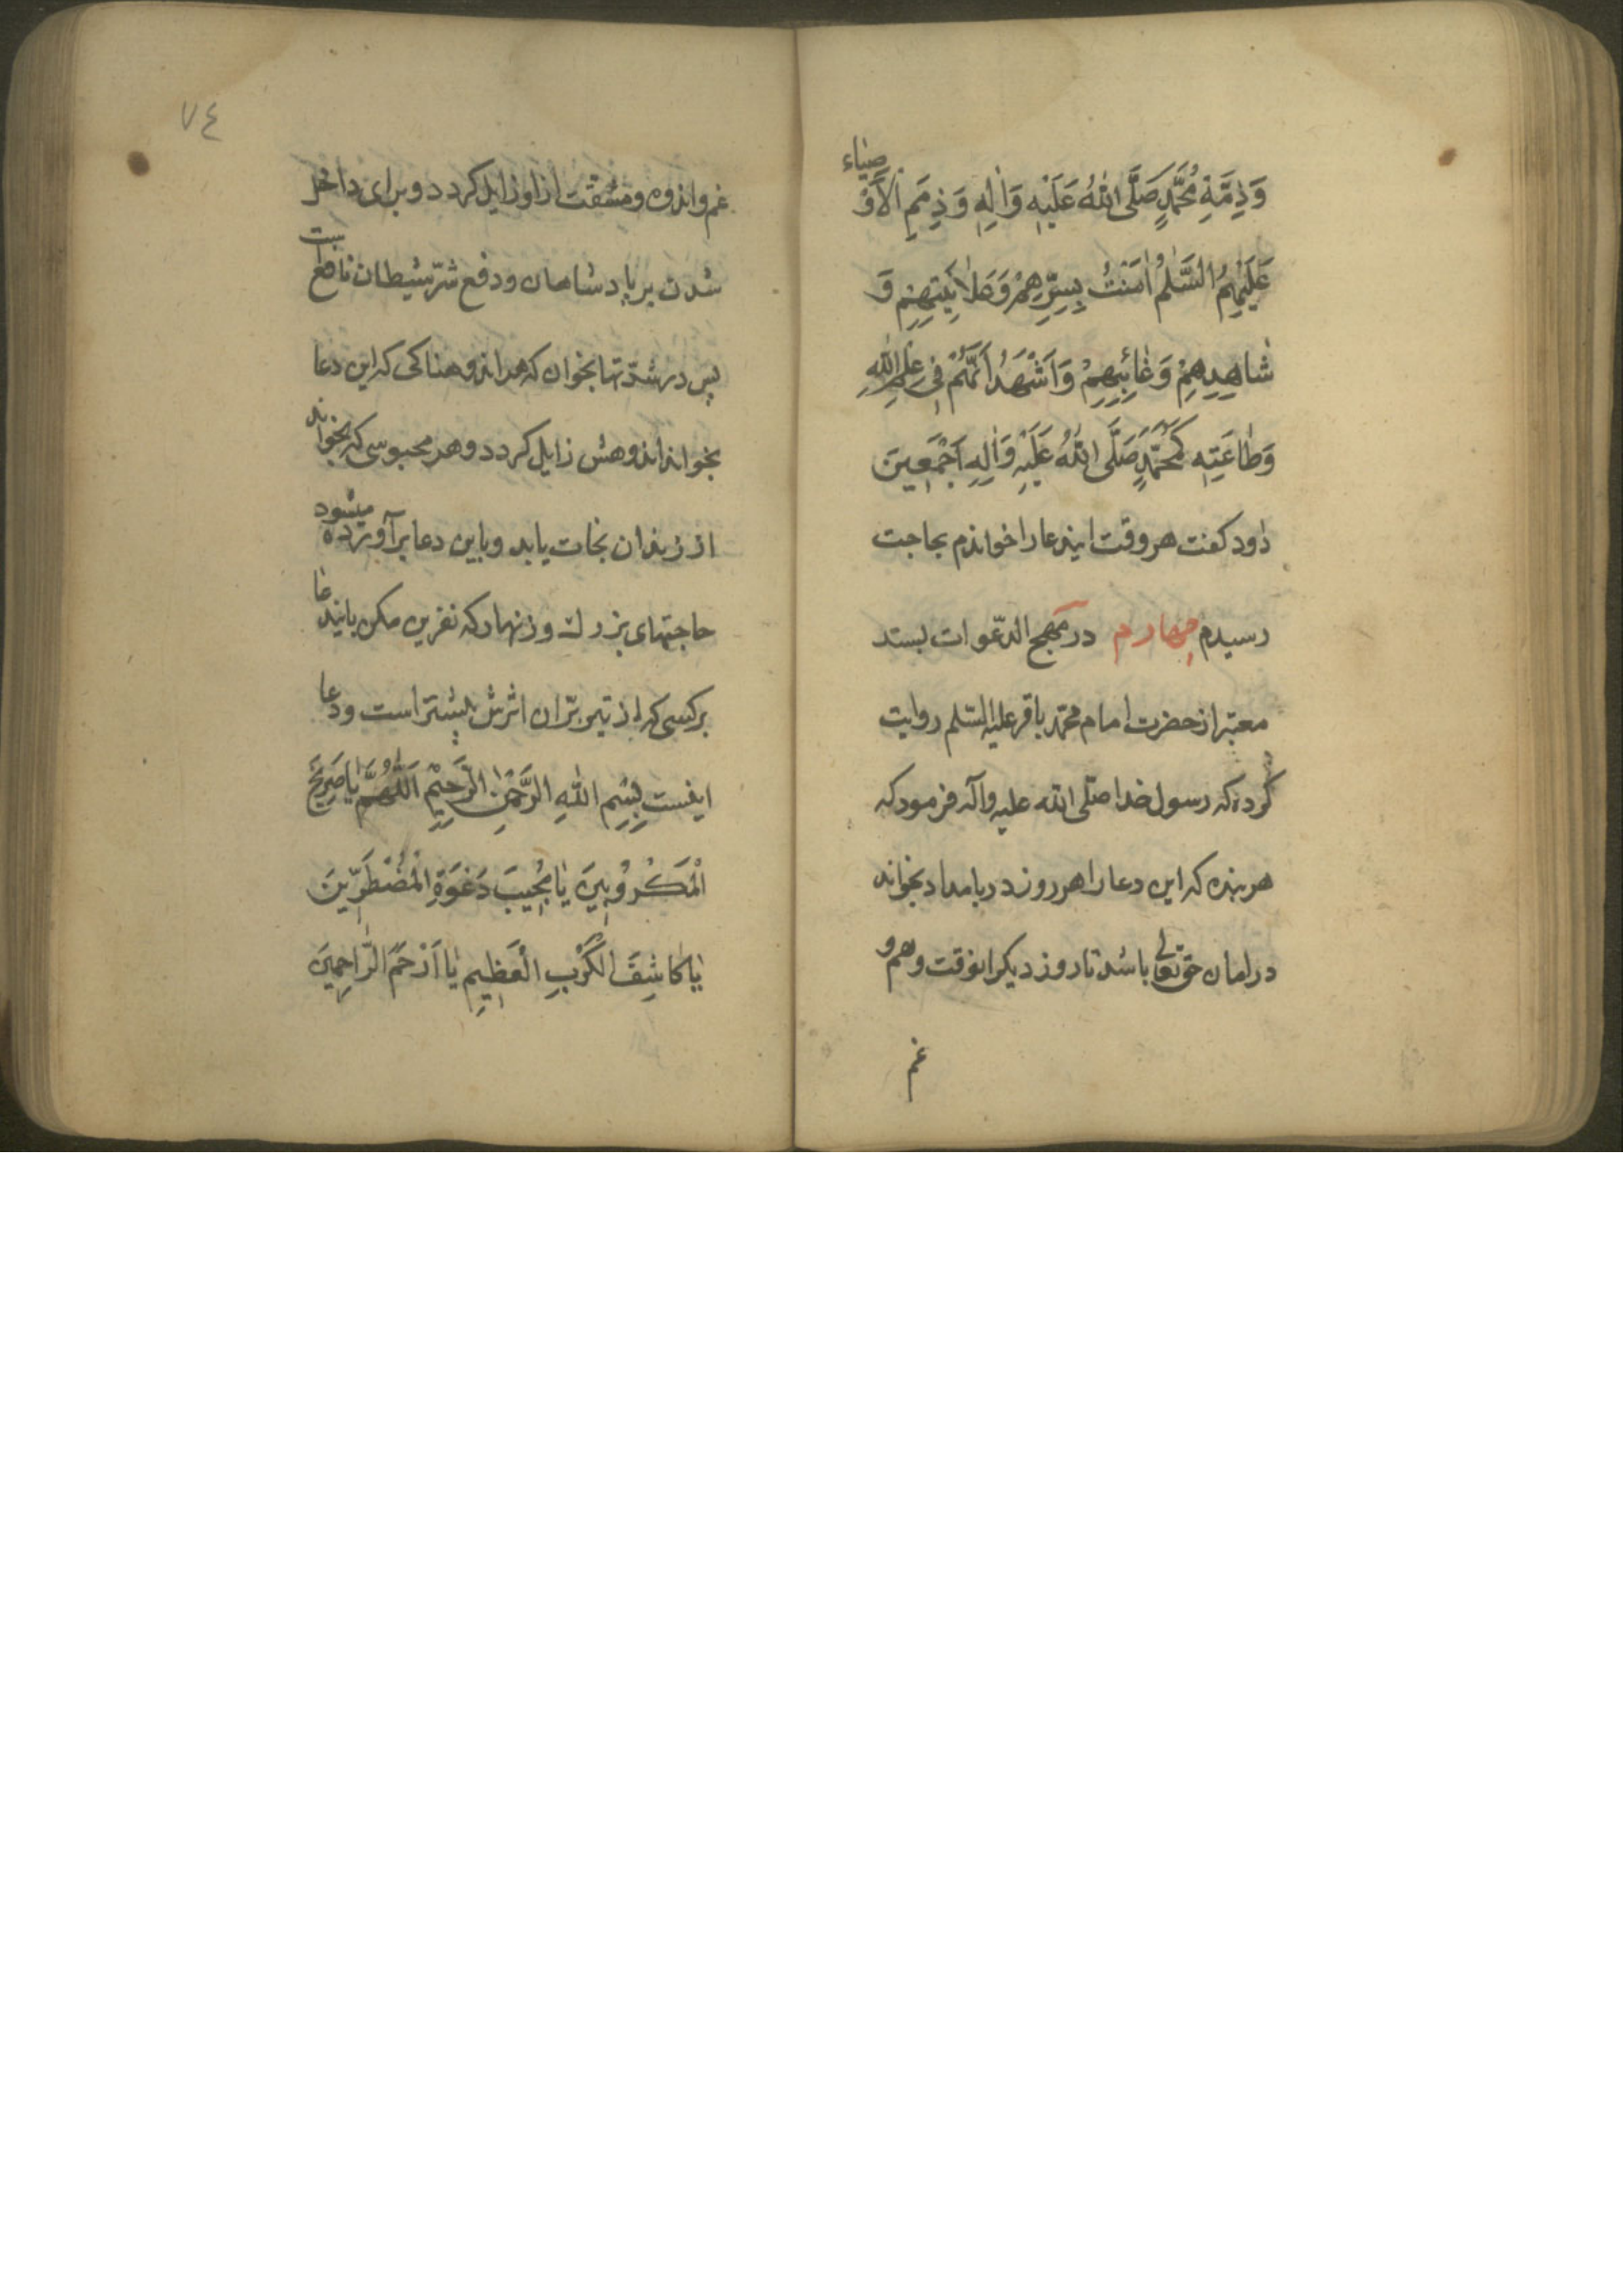 وَذِمَّةِ مُحَمَّدٍ صَلَّى اللهُ عَلَيْهِ وَاٰلِهِ وَذِمَمِ الْاَوْصِيٰاء
عَلَيْهِمُ السَّلٰمُ اٰمَنْتُ بِسِرِّهِمْ وَعَلٰانِيَتِهِمْ وَ
شٰاهِدِهِمْ وَغٰائِبِهِمْ وَاَشْهَدُ اَنَّهُمْ فِي عِلْمِ اللهِ
وَطٰاعَتِهِ كَمُحَمَّدٍ صَلَّى اللهُ عَلَيْهِ وَاٰلِهِ اَجْمَعِينَ
داود كفت هر وقت ايندعا را خواندم بحاجت
رسيدم چهارم در مهج الدّعوات بسند
معتبر از حضرت امام محمّد باقر عليه السّلم روايت
كرده كه رسول خدا صلّى الله عليه وآله فرمود كه
هر بنده كه اين دعا را هر روز در بامداد بخواند
در امان حق تعالى باشد تا روز ديكر انوقت وهم و
غم
٧٤
غم واندوه ومشقت از او زايل كردد وبراى داخل
شدن بر پادشاهان ودفع شرّ شيطان نافع است
پس در شدّتها بخوان كه هر اندوهناكى كه اين دعا
بخواند اندوهش زايل كردد وهر محبوسى كه بخواند
از زندان نجات يابد وباين دعا برآورده ميشود
حاجتهاى بزرك وزنهار كه نفرين مكن بايندعا
بر كسى كه از تير برّان اثرش بيشتر است ودعا
اينست بِسْمِ اللهِ الرَّحْمٰنِ الرَّحِيْمِ اَللّٰهُمَّ يٰا صَرِيخَ
الْمَكْرُوبِينَ يٰا مُجِيبَ دَعْوَةِ الْمُضْطَرِّينَ
يٰا كٰاشِفَ الْكَرْبِ الْعَظِيمِ يٰا اَرْحَمَ الرّٰاحِمِينَ